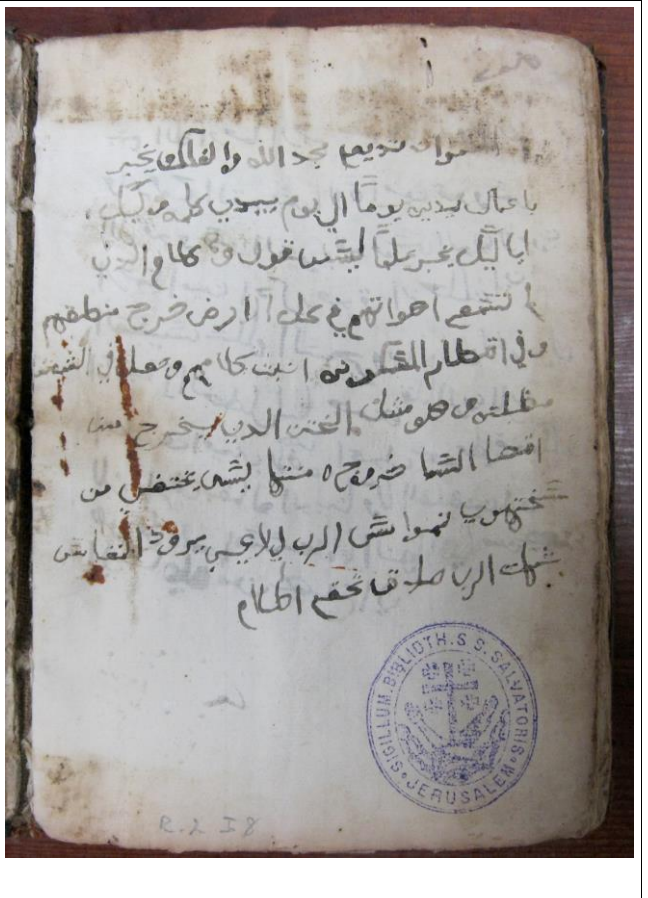 سموات تديع مجد الله والفلك يخبر
باعمال يديه يوماً الي يوم يبدي كلمه وليل
ليل يخبر علماً ليس قول ولا كلام الدي
لا تسمع اصواتهم في كل الارض خرج منطقهم
وفي اقطار المسكونه كلامهم وجعل في الشمس
مظلته وهو مثل الختن الدي يخرج من
اقصا السما خروجه منتها ليس يختفي من
الرب بلا عيب يرد
شهادت الرب
SIGILLUM. BIBLIOTH. S. S. SALVATORIS
JERUSALEM
R. 2 I 8